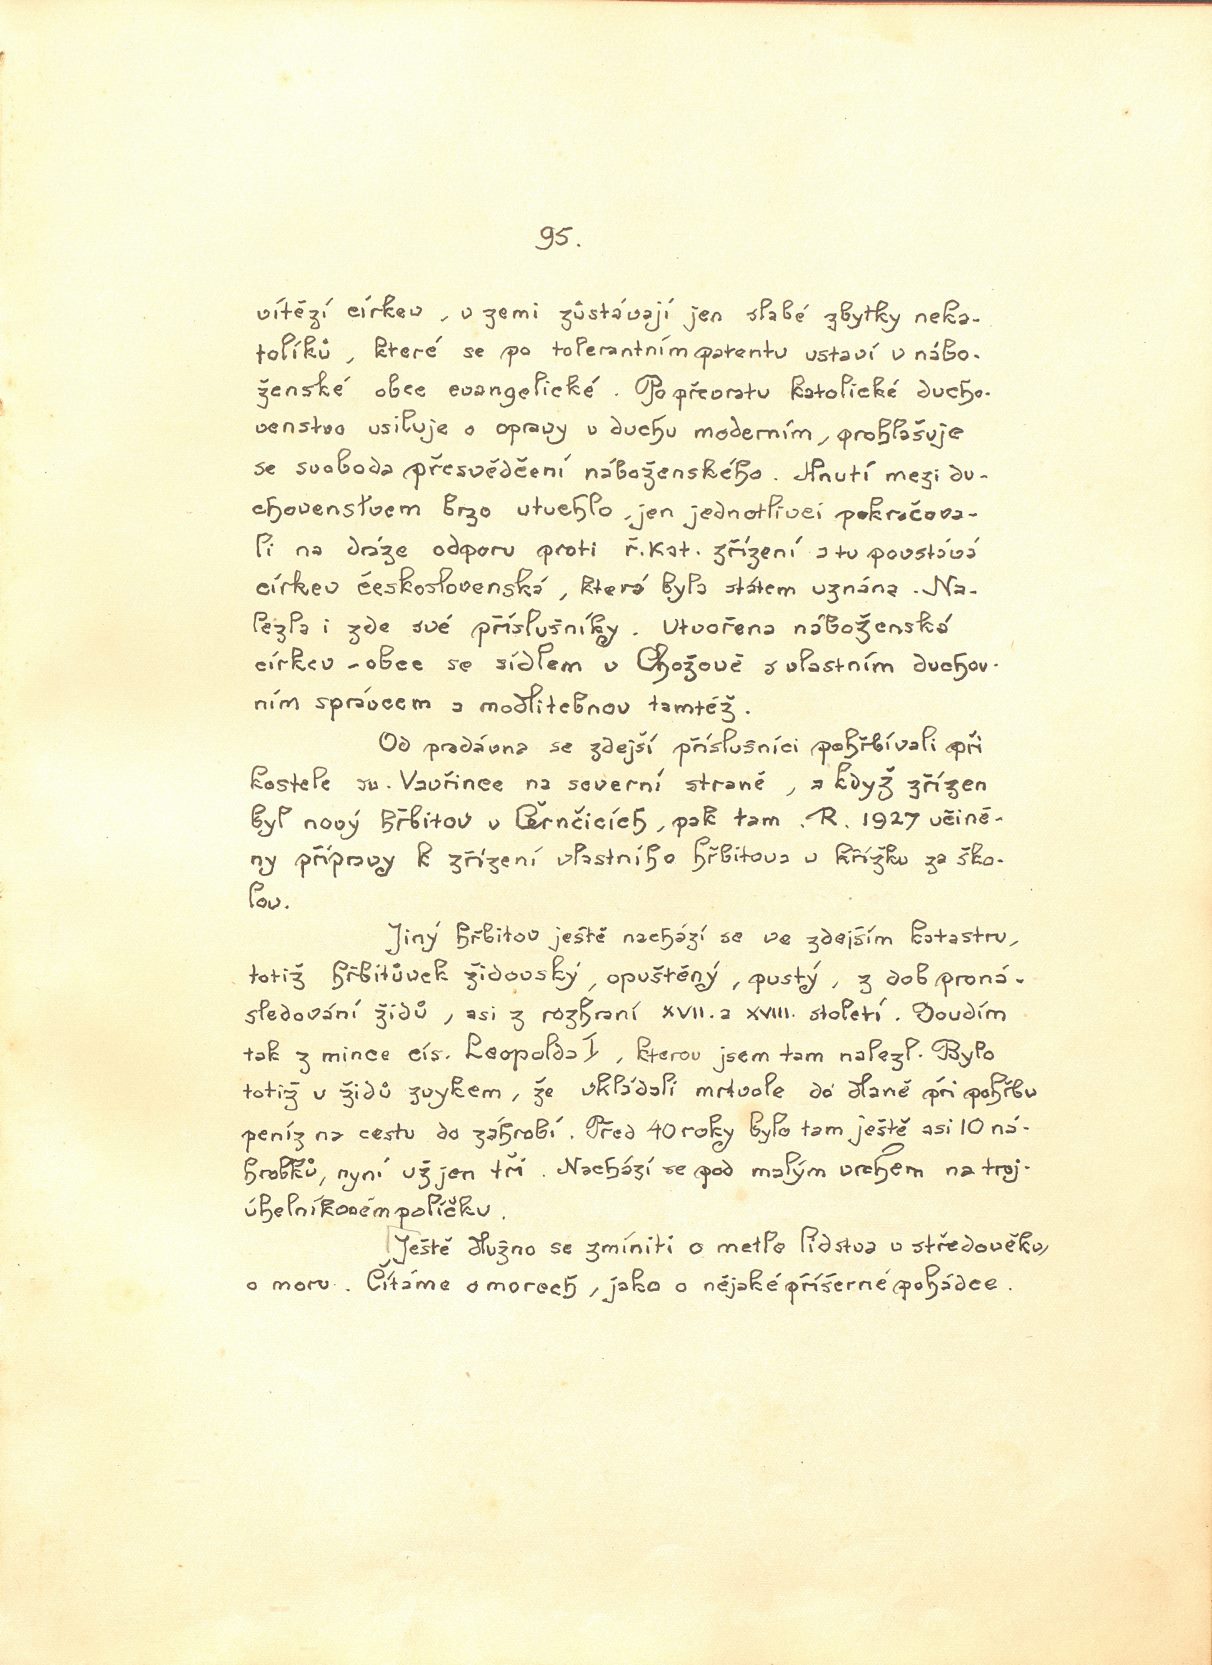 95.
vítězí církev, v zemi zůstávají jen slabé zbytky neka-
tolíků, které se po tolerantním patentu ustaví v nábo-
ženské obce evangelické. Po převratu katolické ducho-
venstvo usiluje o opravy v duchu moderním, prohlašuje
se svoboda přesvědčení náboženského. Hnutí mezi du-
chovenstvem brzo utuchlo, jen jednotlivci pokračova-
li na dráze odporu proti ř. kat. zřízení a tu povstává
církev československá, která byla státem uznána. Na-
lezla i zde své příslušníky. Utvořena náboženská
církev - obec se sídlem v Chožově s vlastním duchov-
ním správcem a modlitebnou tamtéž.
Od pradávna se zdejší příslušníci pohřbívali při
kostele sv. Vavřince na severní straně, a když zřízen
byl nový hřbitov v Černčicích, pak tam. R. 1927 učině-
ny přípravy k zřízení vlastního hřbitova u křížku za ško-
lou.
Jiný hřbitov ještě nachází se ve zdejším katastru,
totiž hřbitůvek židovský, opuštěný, pustý, z dob proná-
sledování židů, asi z rozhraní XVII. a XVIII. století. Soudím
tak z mince cís. Leopolda I, kterou jsem tam nalezl. Bylo
totiž u židů zvykem, že vkládali mrtvole do dlaně při pohřbu
peníz na cestu do záhrobí. Před 40 roky bylo tam ještě asi 10 ná-
hrobků, nyní už jen tři. Nachází se pod malým vrchem na troj-
úhelníkovém políčku.
Ještě dlužno se zmíniti o metle lidstva v středověku,
o moru. Čítáme o morech, jako o nějaké příšerné pohádce.